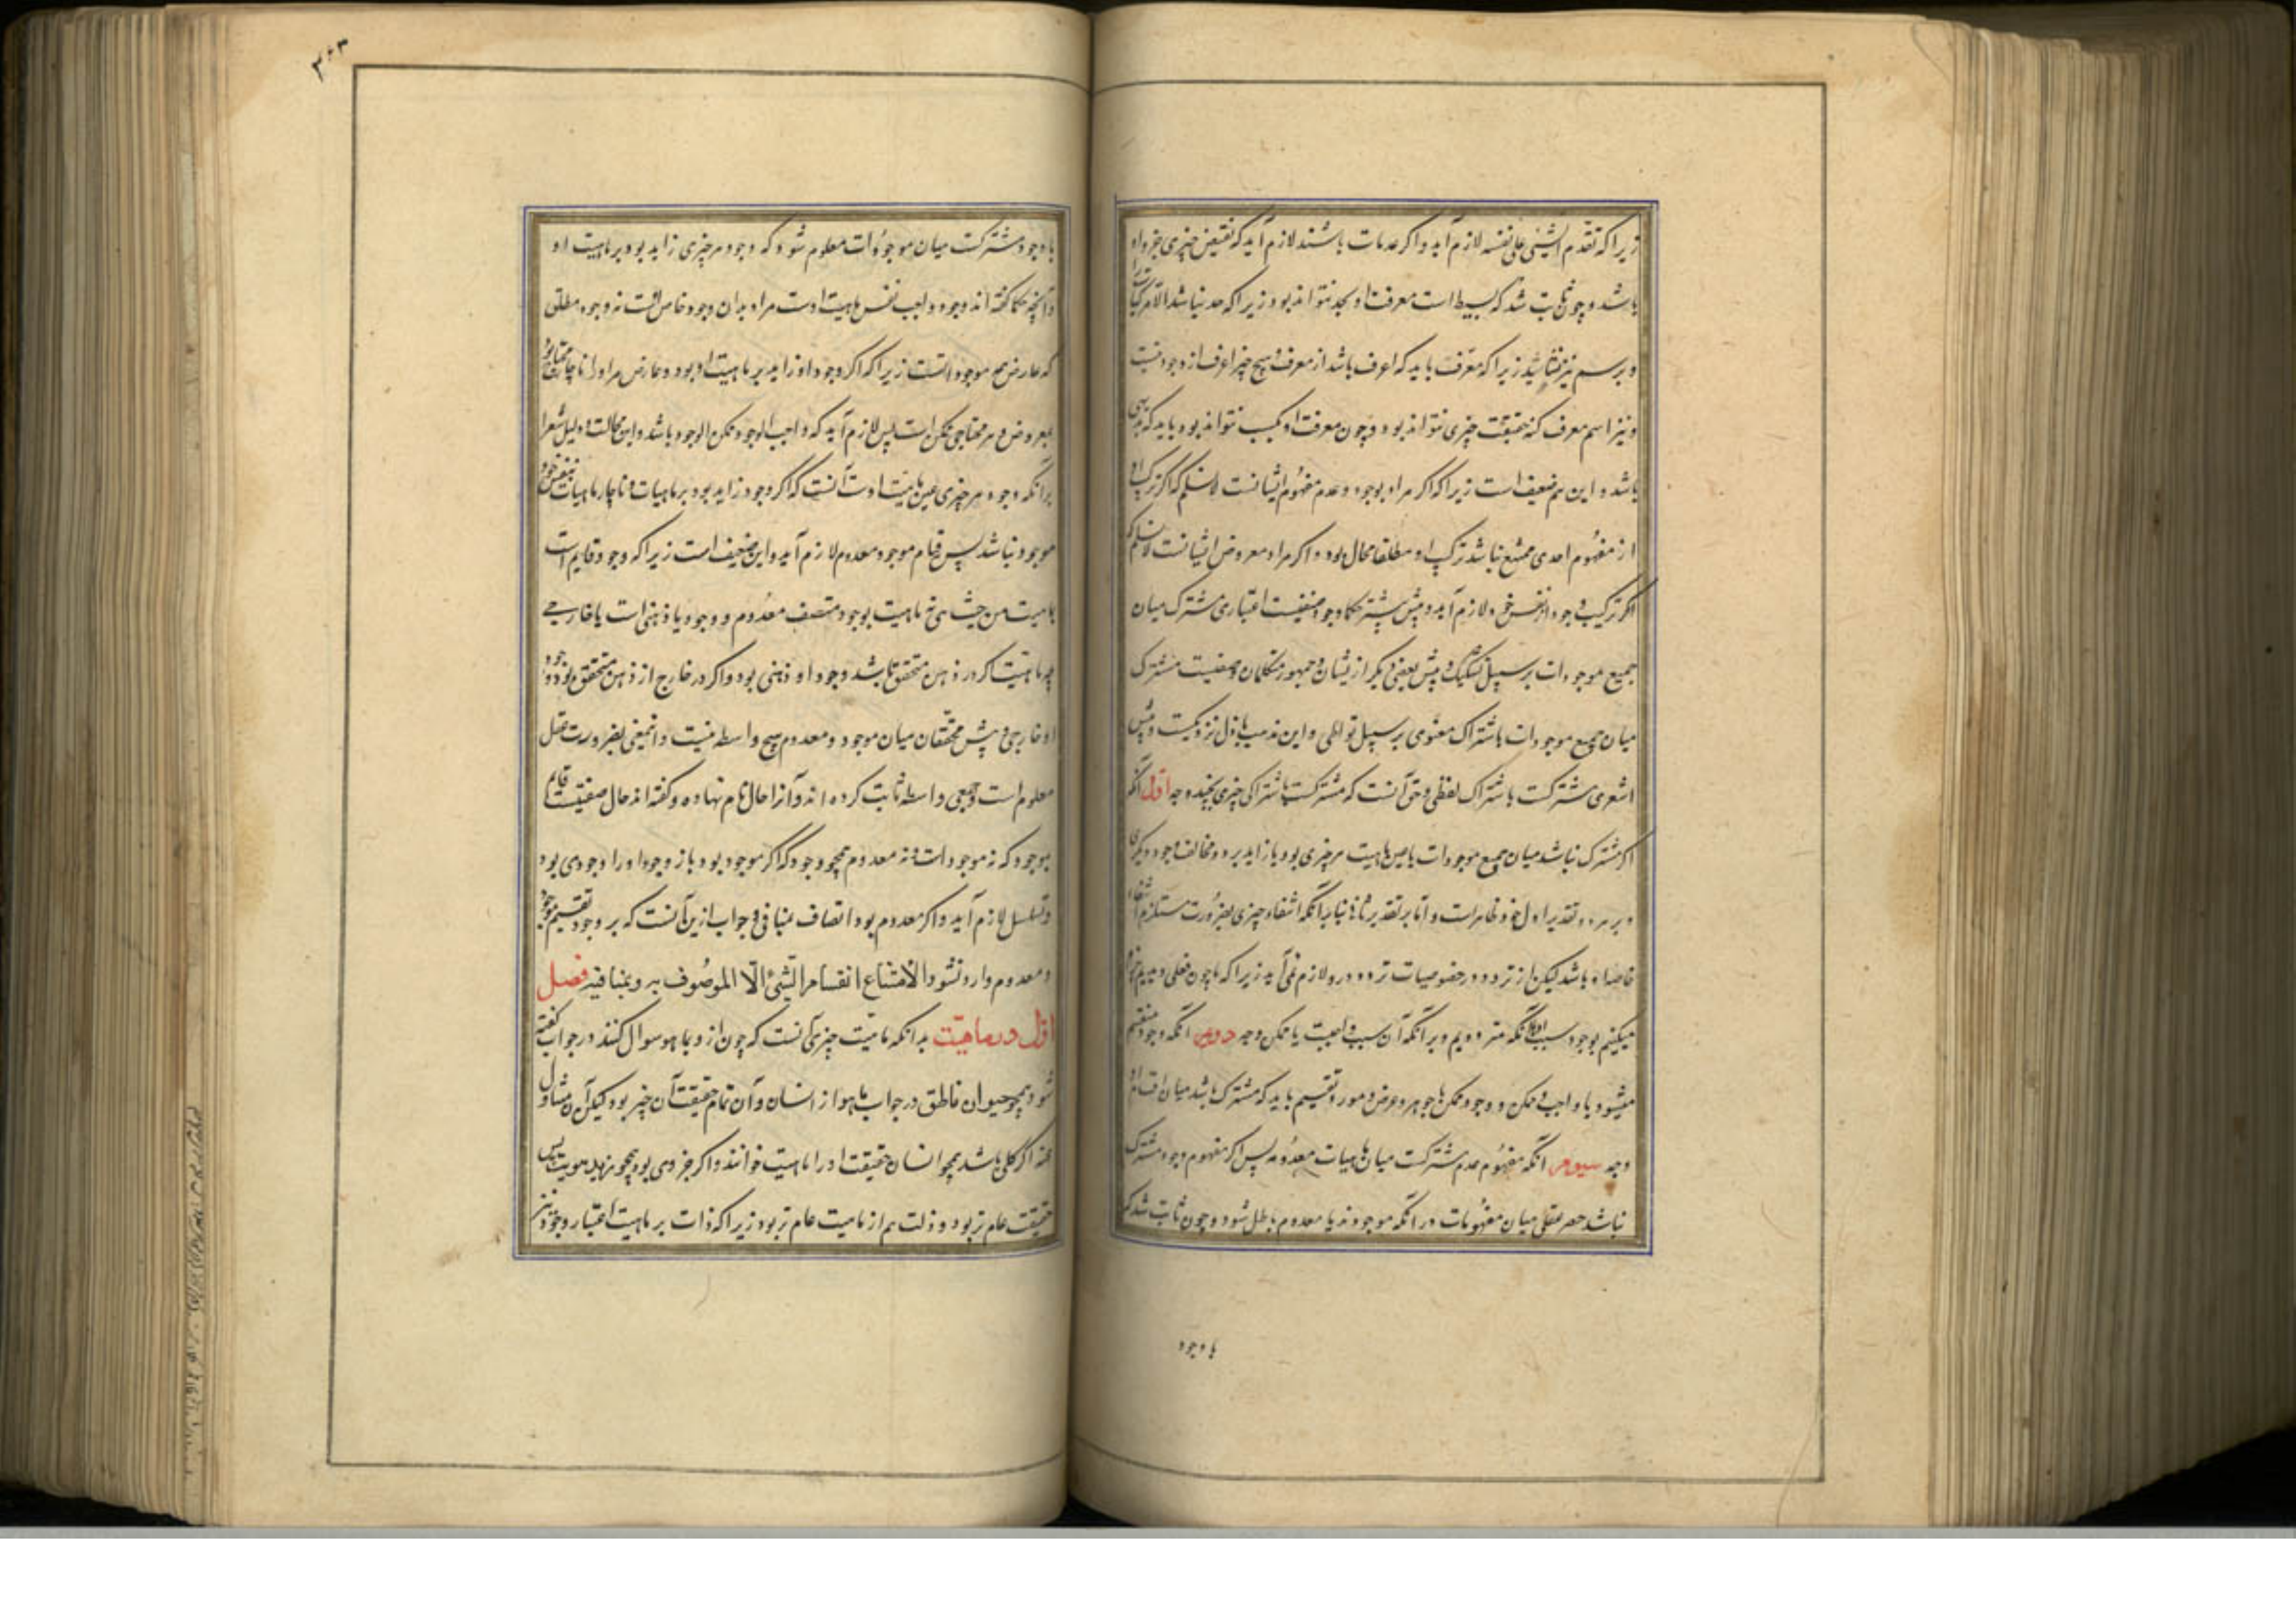 زیرا که تقدم الشیئی علی نفسه لازم آید و اگر عدمات باشند لازم آید که نقیض چیزی جزو او
باشد و چون ثابت شد که بسیط است معرفت او بحد نتواند بود زیرا که حد نباشد الا مرکبات را
و برسم نیز نشاید زیرا که معرف باید که اعرف باشد از معرف و هیچ چیز اعرف از وجود نیست
و نیز اسم معرف کنه حقیقت چیزی نتواند بود و چون معرفت او بکسب نتواند بود باید که بدیهی
باشد و این هم ضعیف است زیرا که اگر مراد بوجود و عدم مفهوم ایشانست لا نسلم که اگر ترکب او
از مفهوم احدی ممتنع نباشد ترکب او مطلقا محال بود و اگر مراد معروض ایشانست لا نسلم که
اگر ترکیب وجود از نفس خود لازم آید و پیش بیشتر حکما وجود صفتیست اعتباری مشترک میان
جمیع موجودات بر سبیل تشکیک و پیش بعضی دیگر از یشان و جمهور متکلمان وصفیست مشترک
میان جمیع موجودات باشتراک معنوی بر سبیل تواطی و این مذهب باول نزدیکست و پیش
اشعری مشترکست باشتراک لفظی و حق آنست که مشترکست باشتراکی چیزی بچند وجه اول آنکه
اگر مشترک نباشد میان جمیع موجودات یا عین ماهیت هر چیزی بود یا زاید برو و مخالف وجود دیگری
و بر هر دو تقدیر اول خود ظاهر است و اما بر تقدیر ثانی بنا بر آنکه انتفاء چیزی بضرورت مستلزم انتفاء
خاصه او باشد لیکن از تردد در خصوصیات تردد درو لازم نمی آید زیرا که ما چون فعلی دیدیم جزم
میکنیم بوجود سبب او با آنکه متردد ویم در آنکه آن سبب واجبست یا ممکن وجه دویم آنکه وجود منقسم
میشود با واجب و ممکن و وجود ممکن با جوهر و عرض و مورد تقسیم باید که مشترک باشد میان اقسام او
وجه سیوم آنکه مفهوم عدم مشترکست میان ماهیات معدومه پس اگر مفهوم وجود مشترک
نباشد حصر عقلی میان مفهومات در آنکه موجودند یا معدوم باطل شود و چون ثابت شد که
با وجود
۲۰۳
با وجود مشترکست میان موجودات معلوم شود که وجود هر چیزی زاید بود بر ماهیت او
و آنچه حکما گفته اند وجود واجب نفس ماهیت اوست مراد بدان وجود خاص اوست نه وجود مطلق
که عارض همه موجوداتست زیرا که اگر وجود او زاید بر ماهیت او بود و عارض مر او را ناچار محتاج بود
بمعروض و هر محتاجی ممکن است پس لازم آید که واجب الوجود ممکن الوجود باشد و این محالست و دلیل اشعری
بر آنکه وجود هر چیزی عین ماهیت اوست آنست که اگر وجود زاید بود بر ماهیات و ناچار ماهیات بنفس خود
موجود نباشد پس قیام موجود معدوم لازم آید و این ضعیف است زیرا که وجود قایم است
بماهیت من حیث هی نه ماهیت بوجود متصف معدوم و وجود یا ذهنی است یا خارجی
چه ماهیت اگر در ذهن متحقق باشد وجود او ذهنی بود و اگر در خارج از ذهن متحقق بود وجود
او خارجی و پیش محققان میان موجود و معدوم هیچ واسطه نیست و این معنی بضرورت عقل
معلوم است و جمعی واسطه ثابت کرده اند و آنرا حال نام نهاده و گفته اند حال صفتیست قایم
بموجود که نه موجود است و نه معدوم همچو وجود که اگر موجود بود باز وجود او را وجودی بود
و تسلسل لازم آید و اگر معدوم بود اتصاف بمنافی و جواب ازین آنست که بر وجود تقسیم موجود
و معدوم وارد نشود الامتناع انقسام الشیئ الا الموصوف به و بمنافیه فصل
اول در ماهیت بدانکه ماهیت چیزی آنست که چون از و بما هو سوال کنند در جواب گفته
شود همچو حیوان ناطق در جواب ما هو از انسان و آن تمام حقیقت آن چیز بود لیکن آن مسئول
عنه اگر کلی باشد همچو انسان حقیقت او را ماهیت خوانند و اگر جزوی بود همچو زید هویت پس
حقیقت عام تر بود و ذات هم از ماهیت عام تر بود زیرا که ذات بر ماهیت اعتبار وجود نیز